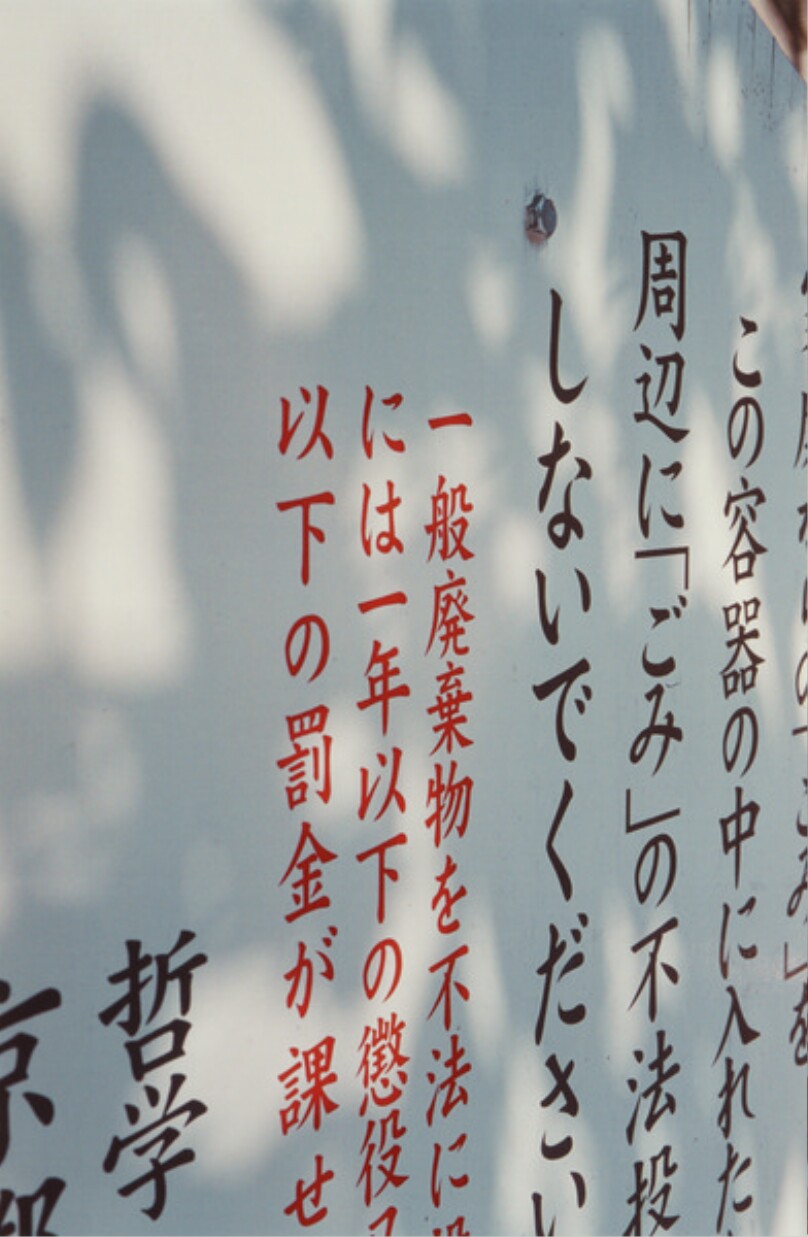 この容器の中に入れた
周辺に「ごみ」の不法投
しないでください
一般廃棄物を不法に
には一年以下の懲役
以下の罰金が課せ
哲学
京都